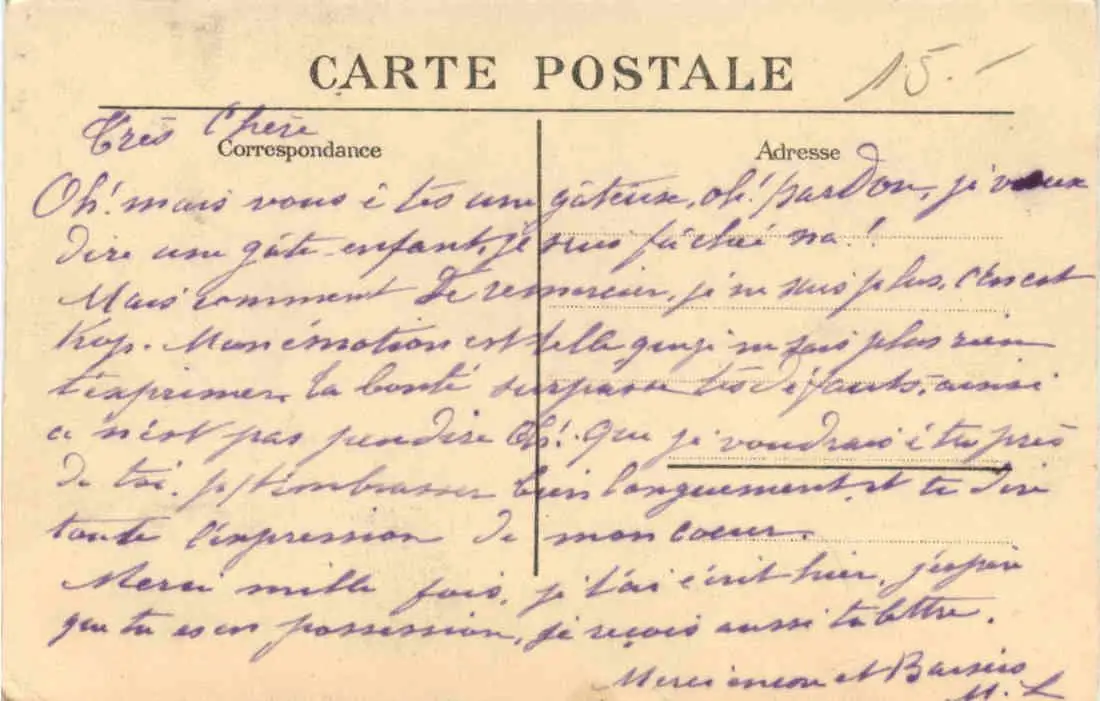 CARTE POSTALE
15.-
Très Chère
Correspondance
Adresse
Oh! mais vous êtes une gâteuse, oh! pardon, je veux
dire une gâte-enfant, je suis fâchée na!
Mais comment te remercier, je ne sais plus, c'en est
trop. Mon émotion est telle que je ne sais plus rien
t'exprimer. Ta bonté surpasse tes défauts, ainsi
ce n'est pas peu dire Oh! que je voudrais être près
de toi, pr t'embrasser bien longuement et te dire
toute l'expression de mon coeur.
Merci mille fois, je t'ai écrit hier, j'espère
que tu es en possession, je reçois aussi ta lettre.
Merci encore et Baisers
M. L